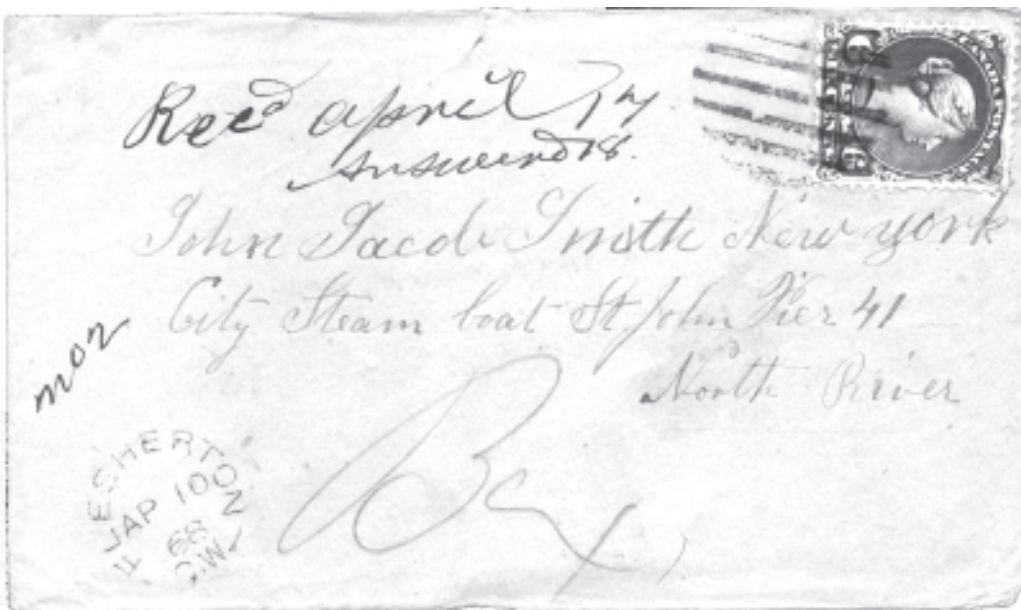 Recd april 17
answered 18.
John Jacob Smith New york
City Steam boat St John Pier 41
North River
FLESHERTON
AP 10
68
C.W.